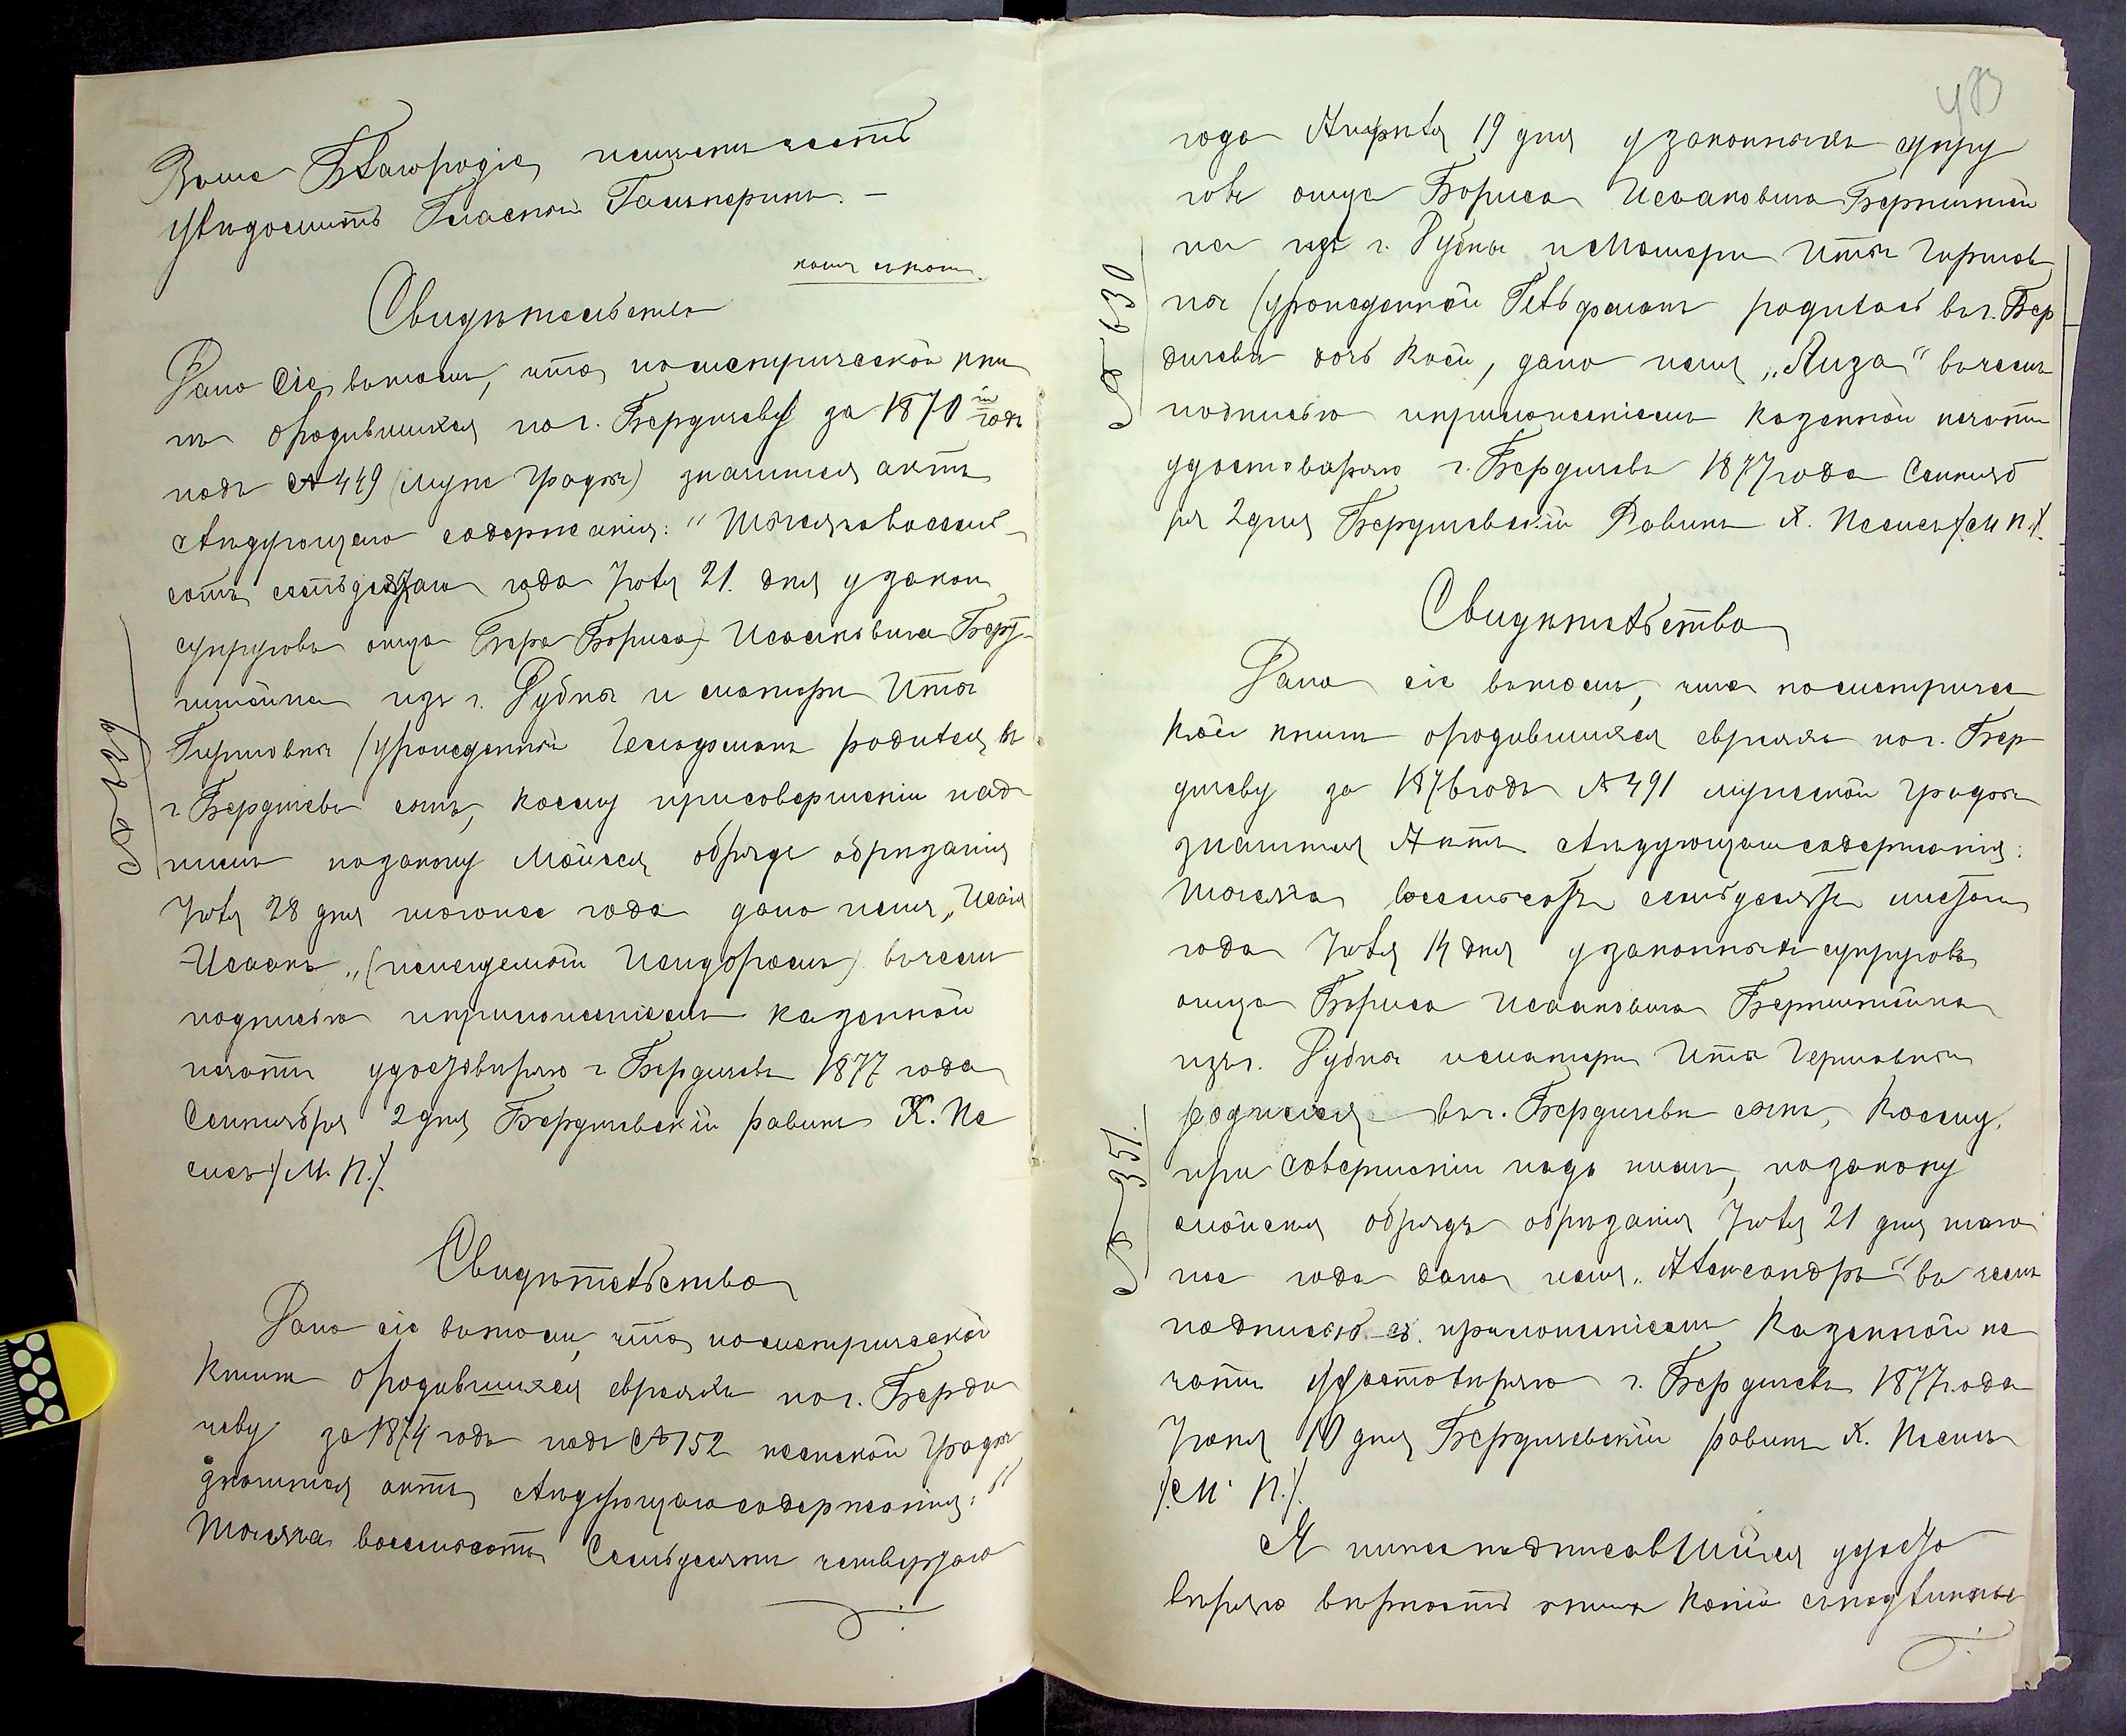 Ваше Благородіе, имѣемъ честь
увѣдомить Гласный Гальперинъ. –
копія съ копіи.
Свидѣтельство
Дано Сіе въ томъ, что по метрической кни
гѣ о родившихся по г. Бердичеву за 1870й годъ
подъ № 449 (муж графы) значится актъ
слѣдующаго содержанія: "Тысяча восемь-
сотъ семьдесятаго года Іюля 21. дня у закон
супруговъ отца Бера Бориса) Исааковича Берн-
штейна изъ г. Дубна и матери Ита
Гиршовна (урожденной Гельдфманъ родился въ
г Бердичевѣ сынъ, коему при совершеніи надъ
нимъ по закону Мойсея обряда обрѣзанія
Іюля 28 дня того же года дано имя „Исаія
Исаакъ„ (именуемый Исидоромъ) въ чемъ
подписью и приложеніемъ казенной
печати удостовѣряю г Бердичевъ 1877 года
Сентября 2 дня Бердичевскій равинъ Х. Пе
сисъ /М. П./.
№ 629
Свидѣтельство
Дано сіе въ томъ, что по метрической
книгѣ о родившихся евреяхъ по г. Берди
чеву за 1874 годъ подъ № 152 женской графы
значится актъ слѣдующаго содержанія: "
Тысяча восемьсотъ Семьдесятъ четвертаго
года Апрѣля 19 дня у законныхъ супру
говъ отца Бориса Исааковича Бернштей
на изъ г. Дубны и Матери Ита Гиршов
на (урожденной Гельдфманъ родилась въ г. Бер
дичевѣ дочь коей, дано имя „Лиза" въ чемъ
подписью и приложеніемъ казенной печати
удостоваряю г. Бердичевъ 1877 года Сентяб
ря 2 дня Бердичевскій Равинъ Х. Песисъ /М П./.
№ 630
Свидѣтельство
Дано сіе въ томъ, что по метричес
кой книгѣ о родившихся евреяхъ по г. Бер
дичеву за 1876 годъ № 491 мужской графы
значится Актъ слѣдующаго содержанія:
Тысяча восемьсотъ семьдесятъ шестаго
года Іюля 14 дня у законныхъ супруговъ
отца Бориса Исааковича Бернштейна
изъ г. Дубна и матери Ита Гершовна
родился въ г. Бердичевѣ сынъ, коему,
при совершеніи надъ нимъ, по закону
Мойсея обряда обрѣзанія Іюля 21 дня того
же года дано имя „Александръ" въ чемъ
подписью съ приложеніемъ Казенной пе
чати удостовѣряю г. Бердичевъ 1877 года
Іюня 10 дня Бердичевскій равинъ Х. Песисъ
/М. П./.
№ 351.
Я нижеподписавшійся удосто
вѣряю вѣрность этихъ копій съ подлинны